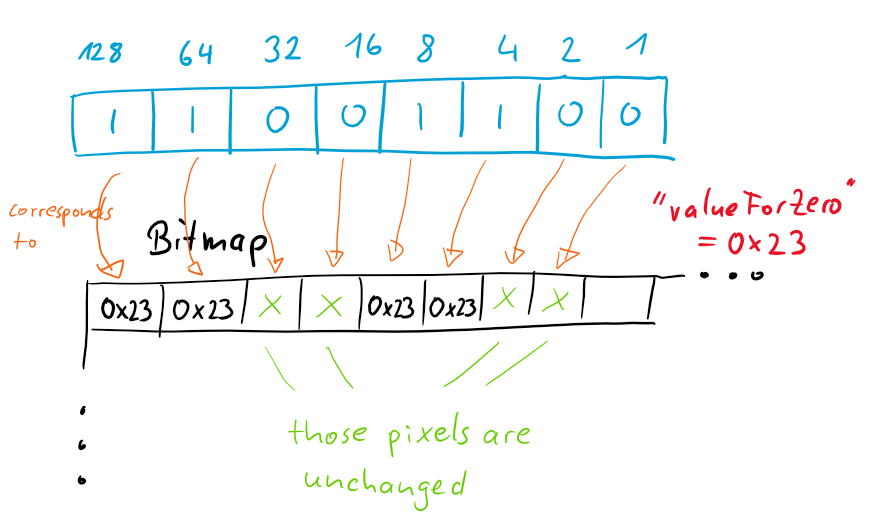 128 64 32 16 8 4 2 1
1 1 0 0 1 1 0 0
corresponds
to
Bitmap
"valueForZero"
= 0x23
0x23 0x23 X X 0x23 0x23 X X
those pixels are
unchanged